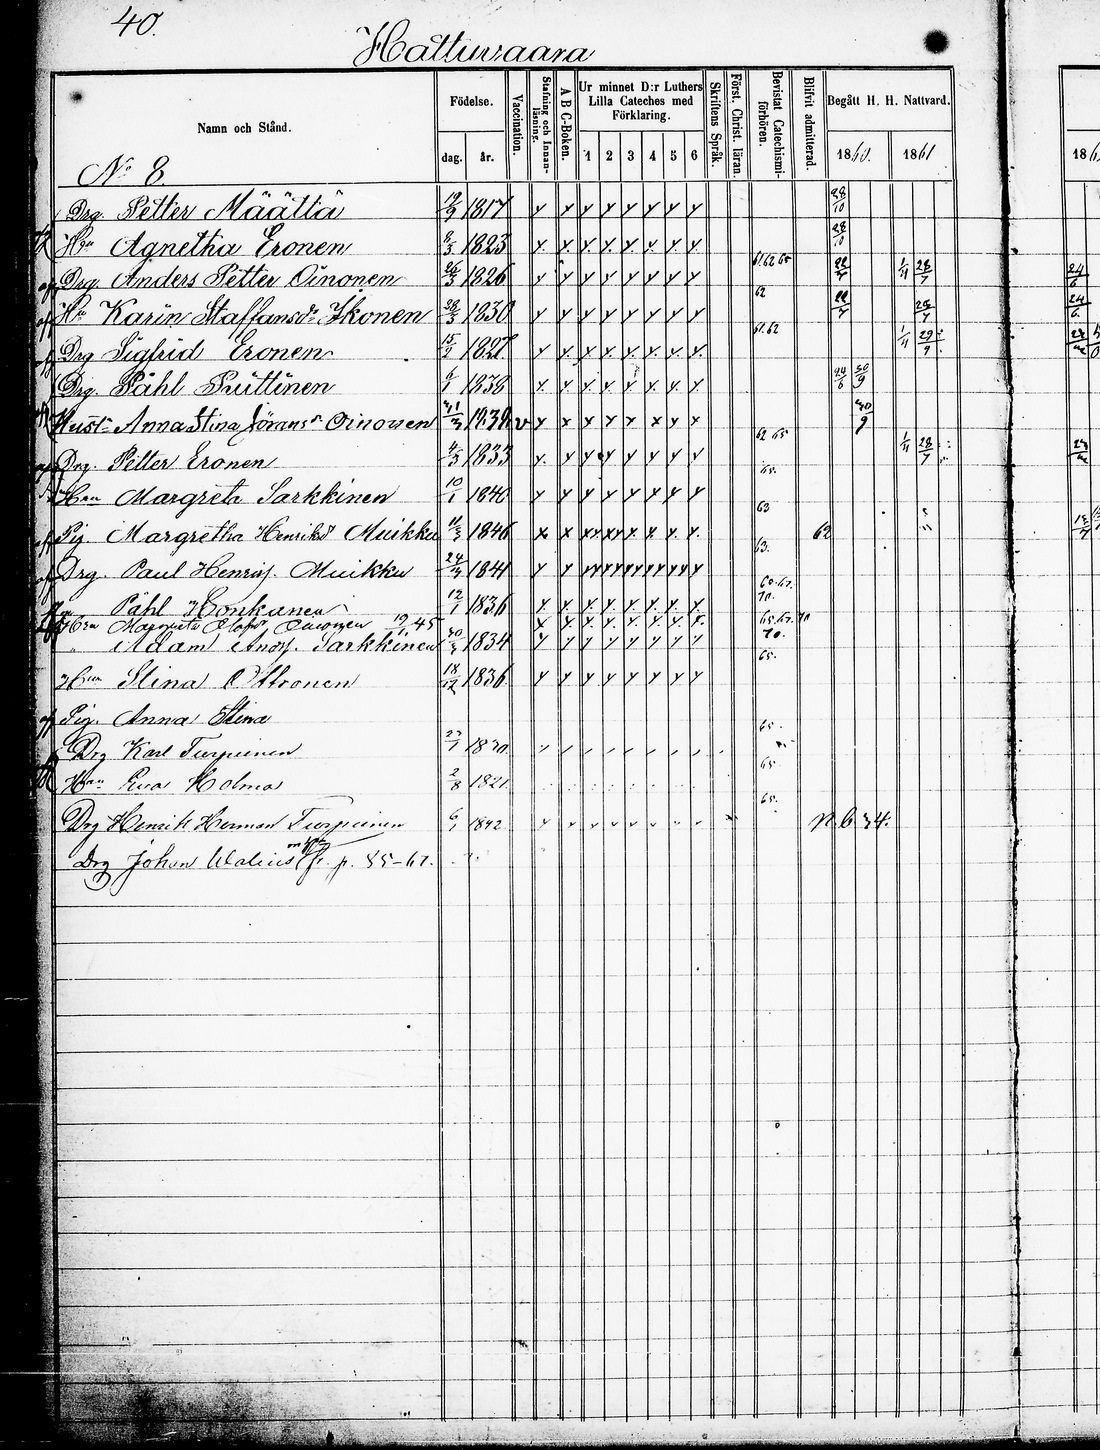 40.
Hattuvaara
Namn och Stånd.
Födelse.
dag. år.
Vaccination.
Stafning och Innanläsning.
A B C-Boken.
Ur minnet D:r Luthers Lilla Cateches med Förklaring.
1 2 3 4 5 6
Skriftens Språk.
Först. Christ. läran.
Bevistat Catechismiförhören.
Blifvit admitterad.
Begått H. H. Nattvard.
1860. 1861
No 8.
Drg. Petter Määttä 1817 x x x x x x x x 28/10
Hu Agnetha Eronen 8/3 1823 x x x x x x x x 28/10
Drg. Anders Petter Oinonen 26/3 1826 x x x x x x x x 61 62 65 22/7 1/11 28/7 24/6
Hu Karin Staffansdr Ikonen 28/3 1830 x x x x x x x x 62 22/7 28/7 24/6
Drg Sigfrid Eronen 1827 x x x x x x x x 61.62 1/11
Drg. Påhl Puittinen 6/1 1838 x x x x x x x x 24/6 30/9
Hust. Anna Stina Göransdr Oinonen 31/3 1939. v x x x x x x x x 30/9
Drg. Petter Eronen 4/3 1833 x x x x x x x x 62 65 1/11 28/7
Hru Margreta Sarkkinen 10/1 1840 x x x x x x x x 65.
Pig. Margretha Henriksd Muikku 11/3 1846 x x xx xx x x x x 63 62
Drg. Paul Henrisj. Muikku 24/3 1841 x x 63.
Påhl Honkanen 12/1 1836 x x x x x x x x 70.
Hru Margreta Olofsd Oinonen 19/11 45 x x x x x x x x 65.67.70
" Adam Andsj. Sarkkinen 30/3 1834 x x x x x x x x 70.
Hru Stina Ottronen 18/12 1836 x x x x x x x x 65.
Pig. Anna Stina
Drg Karl Turpeinen 1830 65.
Hru Eva Holma 2/8 1821 65.
Drg Henrik Herman Turpeinen 6/1 1842 65. N. b 34.
Drg Johan Walius fr. p. 85-67.